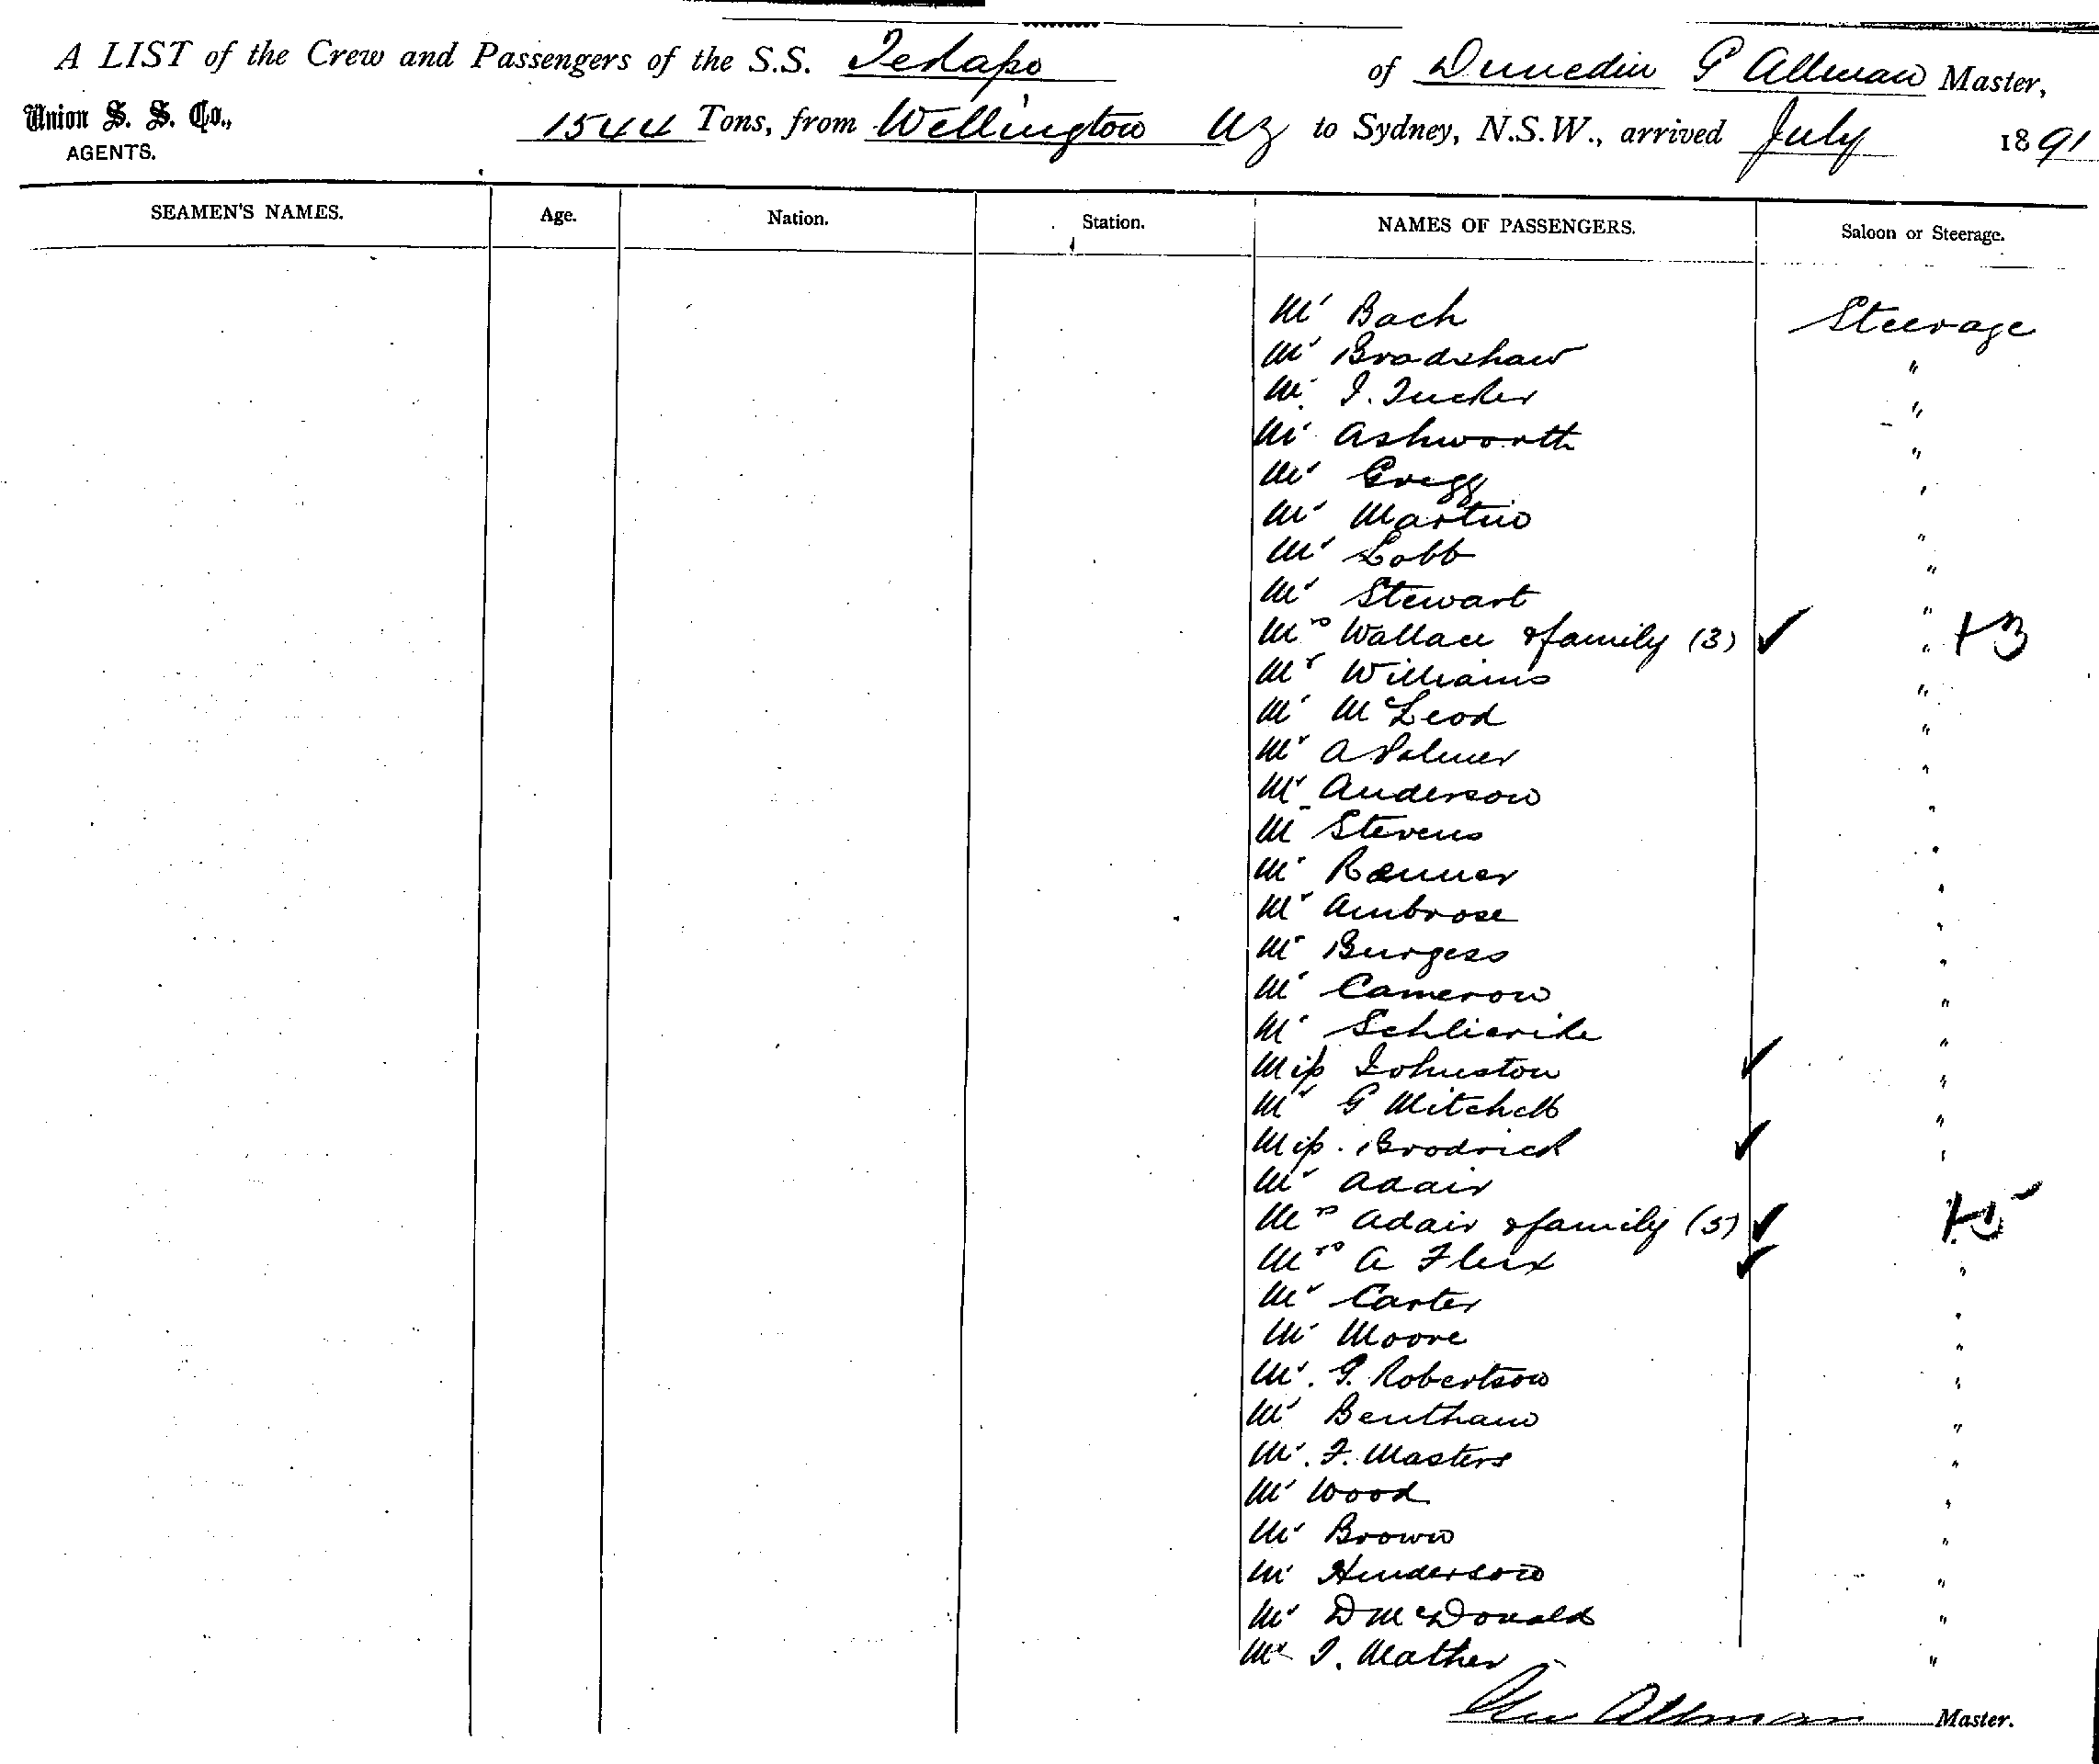 A LIST of the Crew and Passengers of the S.S. Tekapo of Dunedin G Allman Master,
Union S. S. Co.,
AGENTS.
1544 Tons, from Wellington NZ to Sydney, N.S.W., arrived July 1891
SEAMEN'S NAMES. Age. Nation. Station. NAMES OF PASSENGERS. Saloon or Steerage.
Mr Bach Steerage
Mr Bradshaw "
Mr J. Tucker "
Mr Ashworth "
Mr Gregg "
Mr Martin "
Mr Lobb "
Mr Stewart "
Mrs Wallace & family (3) ✓ " +3
Mr Williams "
Mr McLeod "
Mr A Palmer "
Mr Anderson "
Mr Stevens "
Mr Renner "
Mr Ambrose "
Mr Burgess "
Mr Cameron "
Mr "
Miss Johnston ✓ "
Mr G Mitchell "
Miss Brodrick ✓ "
Mr Adair
Mrs Adair & family (5) ✓ +5
Mrs A ✓ "
Mr Carter "
Mr Moore "
Mr. G. Robertson "
Mr Bentham "
Mr. F. Masters "
Mr Wood "
Mr Brown "
Mr Henderson "
Mr D McDonald "
Mr J. Mather "
Geo Allman Master.